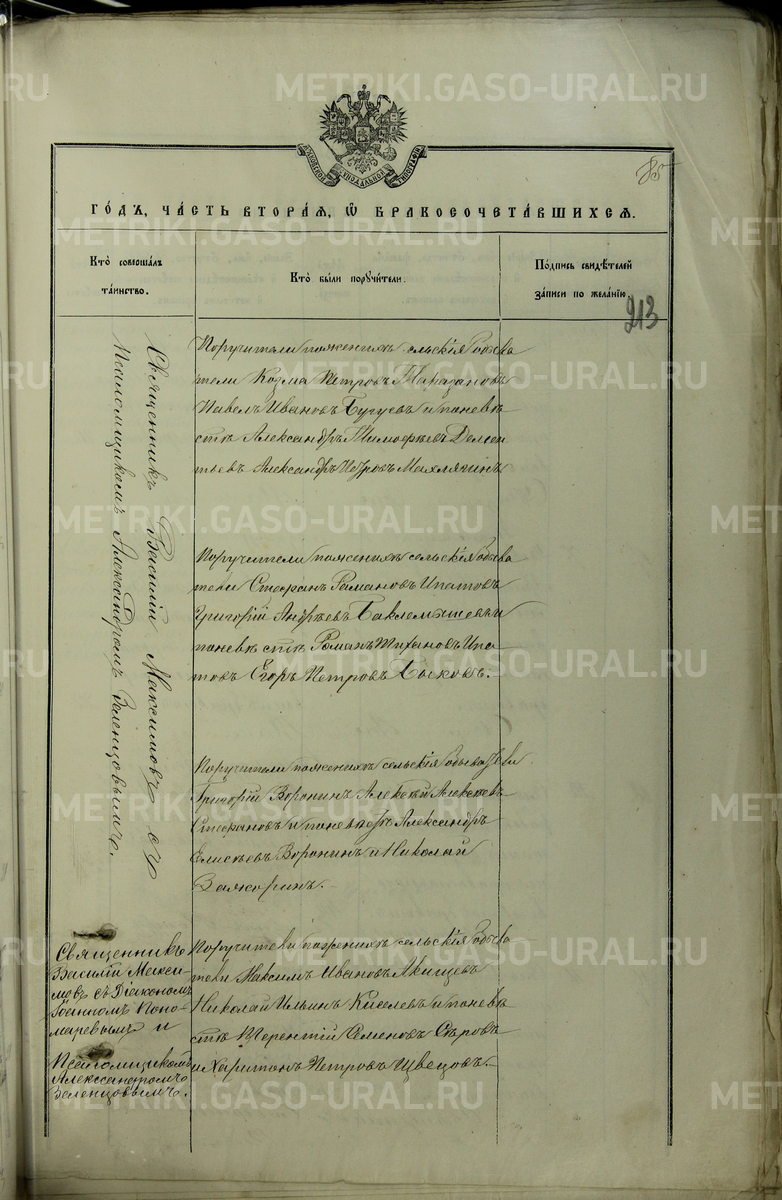 METRIKI.GASO-URAL.RU
85
годъ, часть вторая, ѡ бракосочетавшихся.
Кто совершалъ таинство.
Кто были поручители.
Подпись свидѣтелей записи по желанію.
213
Священникъ Василій Максимовъ съ
Псаломщикомъ Александромъ Зеленцовымъ.
Поручители по женихѣ сельскія обыва
тели Козма Петровъ
Павелъ Ивановъ и по невѣ
стѣ Александръ Тимофѣевъ Демен
тьевъ Александръ Петровъ Махлягинъ
Поручители по женихѣ сельскія обыва
тели Стефанъ Романовъ Ипатовъ
Григорій Андреевъ Баклемышевъ и
по невѣстѣ Романъ Тихановъ Ипа
товъ Егоръ Петровъ Быковъ.
Поручители по женихѣ сельскія обыватели
Григорій Воронинъ Алексѣй Алексѣевъ
Стефановъ и по невѣстѣ Александръ
Елисѣевъ Воронинъ и Николай
Зажоринъ.
Священникъ
Василій Макси
мовъ съ Діакономъ
Іоанномъ Поно
маревымъ и
Псаломщикомъ
Александромъ
Зеленцовымъ.
Поручители по женихѣ сельскія обыва
тели Максимъ Ивановъ Акищевъ
Николай Ильинъ Киселевъ и по невѣ
стѣ Терентій Семеновъ Сѣровъ
и Харитонъ Петровъ Швецовъ.